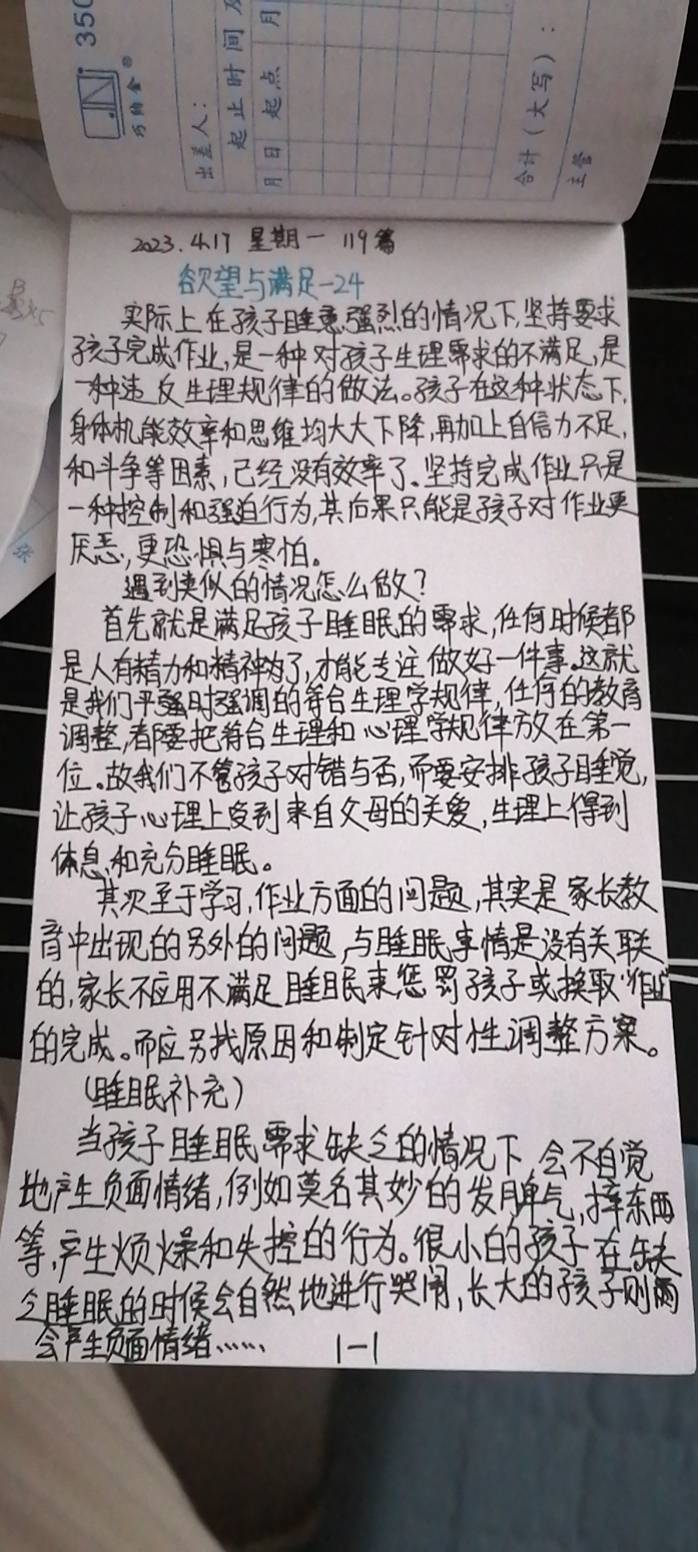 350
巧纳会®
出差人：
起止时间及
月 日 起点 月
合计（大写）：
主管
2023.4.17 星期一 119篇
欲望与满足-24
实际上在孩子睡意强烈的情况下,坚持要求
孩子完成作业,是一种对孩子生理需求的不满足,是
一种违反生理规律的做法。孩子在这种状态下,
身体机能效率和思维均大大下降,再加上自信力不足,
和斗争等因素,已经没有效率了.坚持完成作业只是
一种控制和强迫行为,其后果只能是孩子对作业更
厌恶,更恐惧与害怕。
遇到类似的情况怎么做?
首先就是满足孩子睡眠的需求,任何时候都
是人有精力和精神的了,才能专注做好一件事。这就
是我们平时强调的符合生理学规律,任何的教育
调整,都要把符合生理和心理学规律放在第一
位。故我们不管孩子对错与否,而要安排孩子睡觉,
让孩子心理上受到来自父母的关爱,生理上得到
休息,和充分睡眠。
其次至于学习,作业方面的问题,其实是家长教
育中出现的另外的问题,与睡眠事情是没有关联
的,家长不应用不满足睡眠来惩罚孩子或换取“作业”
的完成。而应另找原因和制定针对性调整方案。
(睡眠补充)
当孩子睡眠需求缺乏的情况下,会不自觉
地产生负面情绪,例如莫名其妙的发脾气,摔东西
等,产生烦燥和失控的行为。很小的孩子在缺
乏睡眠的时候会自然地进行哭闹,长大的孩子则
会产生负面情绪……
1-1